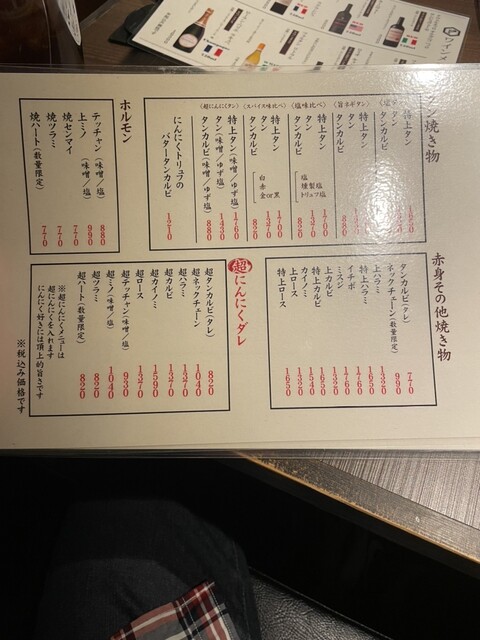 ン焼き物
特上タン
タンカルビ
〈旨ネギタン〉
特上タン
タン
タンカルビ 880
〈塩味比べ〉
特上タン
タン
タンカルビ 820
塩
燻製塩
トリュフ塩
〈スパイス味比べ〉
特上タン
タン
タンカルビ 820
白
赤
金or黒
〈超にんにくタン〉
特上タン(味噌/ゆず塩) 1760
タン(味噌/ゆず塩) 1430
タンカルビ(味噌/ゆず塩) 880
にんにくトリュフの
バタータンカルビ 1210
ホルモン
テッチャン(味噌/塩) 880
上ミノ(味噌/塩) 990
焼センマイ 770
焼ツラミ 770
焼ハート(数量限定) 770
赤身その他焼き物
タンカルビ(タレ) 770
ネックチェーン(数量限定) 990
上ハラミ 1320
特上ハラミ 1650
イチボ 1760
ミスジ 1760
上カルビ 1320
特上カルビ 1650
カイノミ 1540
上ロース 1320
特上ロース 1650
超にんにくダレ
超タンカルビ(タレ) 820
超ネックチェーン 1040
超ハラミ 1370
超カルビ 1370
超カイノミ 1590
超ロース 1370
超テッチャン(味噌/塩) 930
超ミノ(味噌/塩) 1040
超ツラミ 820
超ハート(数量限定) 820
※超にんにくメニューは
超にんにくを入れます
にんにく好きには頂上的旨さです
※税込み価格です
ワインメ